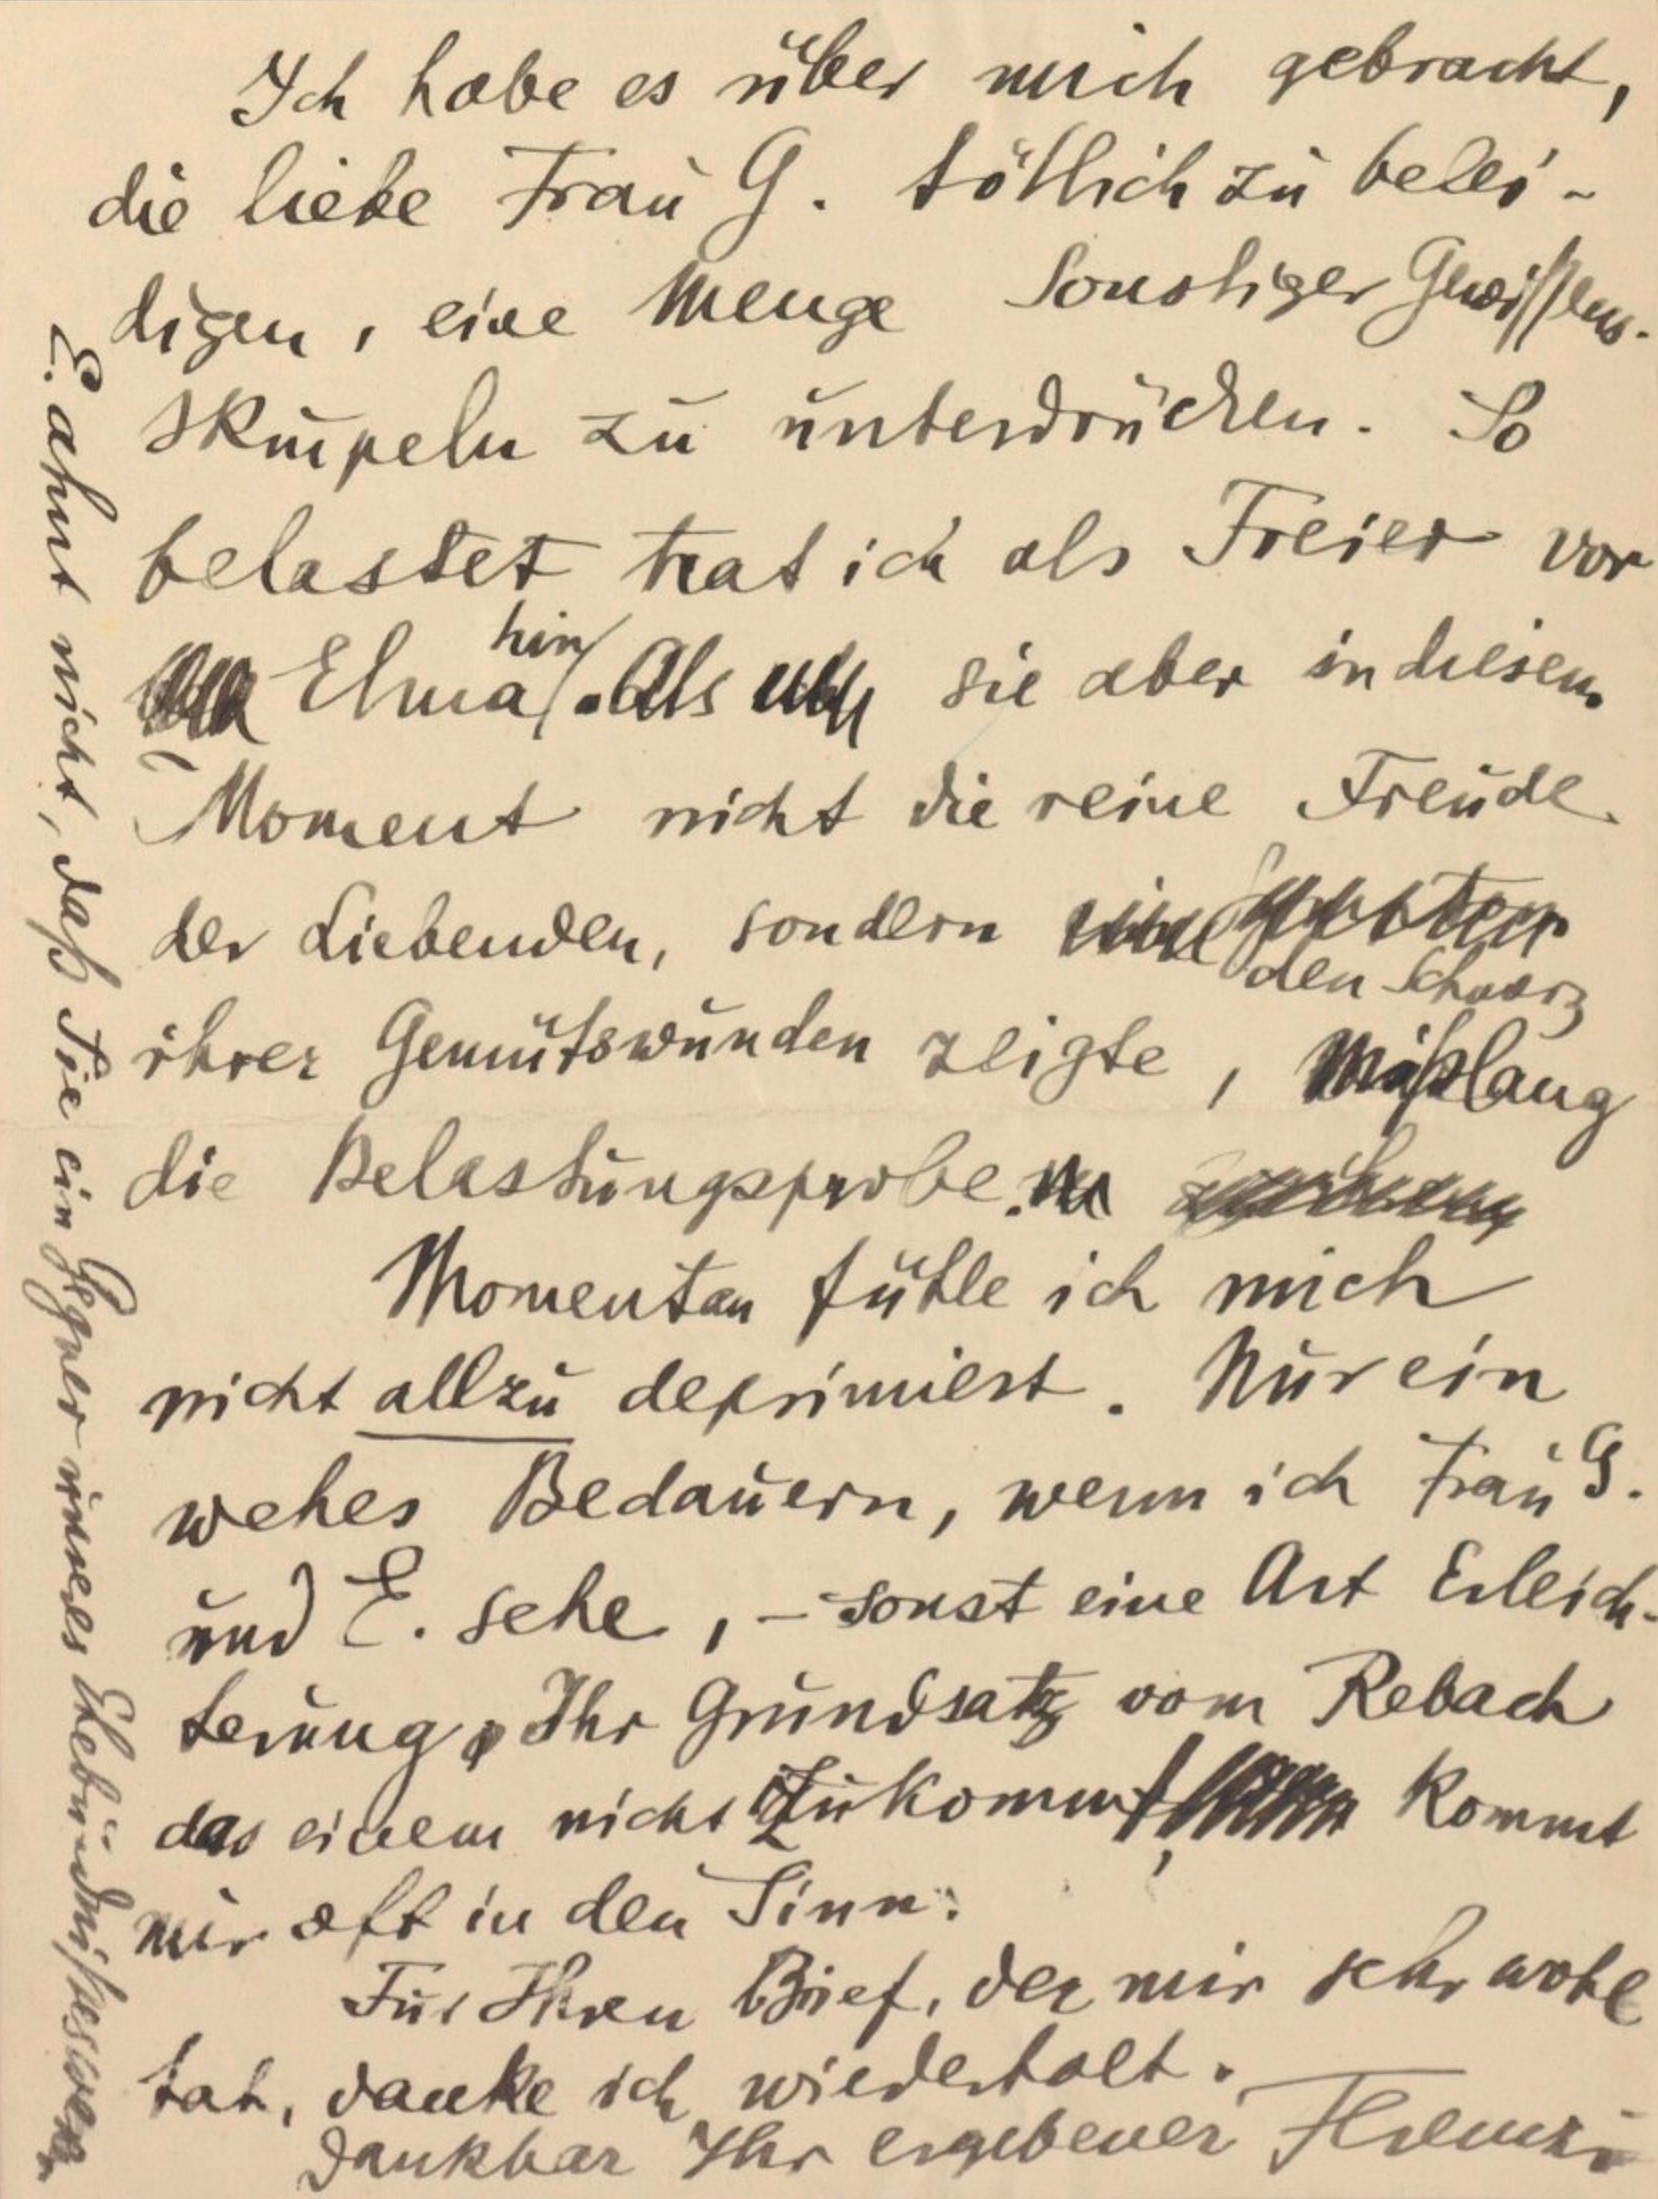 Ich habe es über mich gebracht,
die liebe Frau G. tötlich zu belei-
digen, eine Menge sonstiger Gewissens-
skrupeln zu unterdrücken. So
belastet trat ich als Freier vor
Elma hin. Als sie aber in diesem
Moment nicht die reine Freude
der Liebenden, sondern
den Schmerz
ihrer Gemütswunden zeigte, mißlang
die Belastungsprobe.
Momentan fühle ich mich
nicht allzu deprimiert. Nur ein
wehes Bedauern, wenn ich Frau G.
und E. sehe, – sonst eine Art Erleich-
terung. Ihr Grundsatz vom Rebach
das einem nicht zukommt, kommt
mir oft in den Sinn.
Für Ihren Brief, der mir sehr wohl
tat, danke ich wiederholt.
Dankbar Ihr ergebener Ferenczi
E. ahnt nicht, daß Sie ein Gegner unseres Ehebündnisses waren